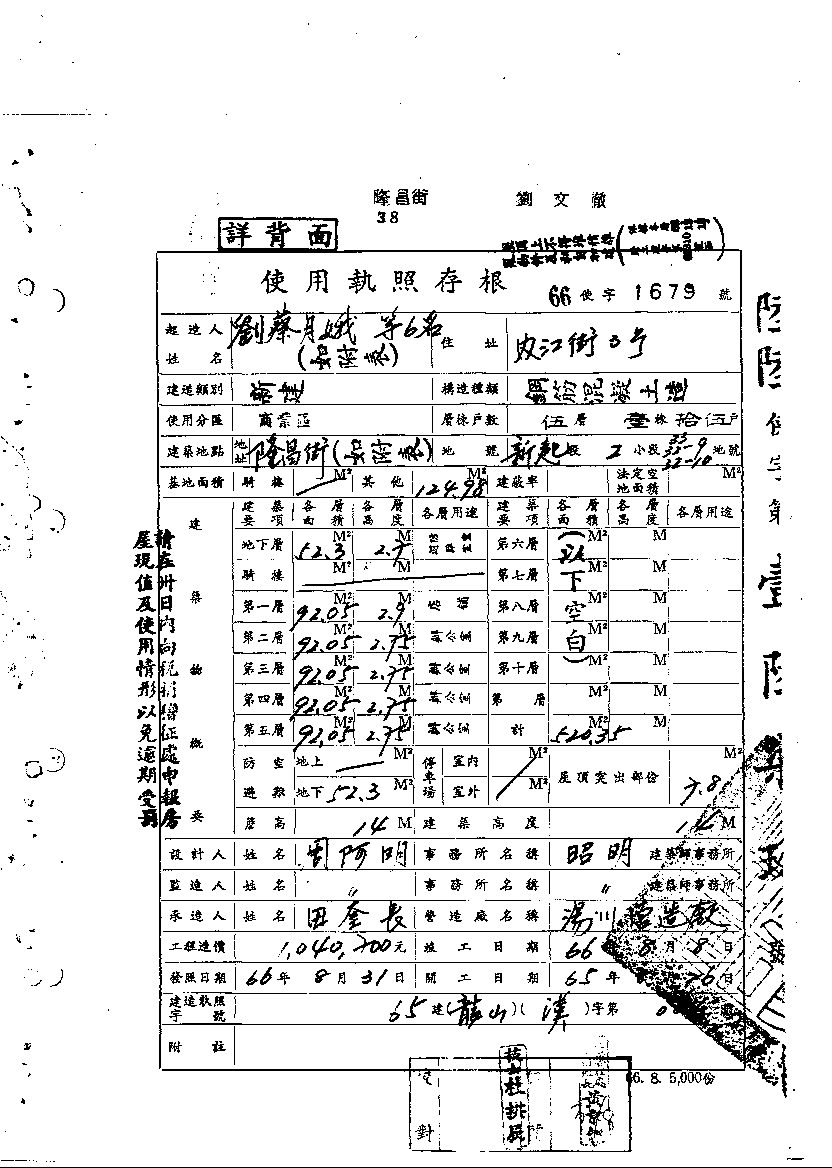 隆昌街 劉文徹
38
詳背面
使用執照存根
66 使字 1679 號
起造人姓名 劉蔡月娥 等6名 (如附表) 住址 內江街3号
建造類別 新建 構造種類 鋼筋混凝土造
使用分區 商業區 層棟戶數 伍層 壹棟 拾伍戶
建築地點 地址 隆昌街(如附表) 地號 新起段 2小段 33-9 33-10 地號
基地面積 騎樓 M² 其他 124.98 M² 建蔽率 法定空地面積 M²
建築物概要
建築要項 各層面積 各層高度 各層用途 建築要項 各層面積 各層高度 各層用途
地下層 52.3 M² 2.7 M 第六層 (以下空白) M² M
騎樓 M² M 第七層 M
第一層 92.05 M² 2.9 M 第八層 M
第二層 92.05 M² 2.75 M 第九層 M
第三層 92.05 M² 2.75 M 第十層 M² M
第四層 92.05 M² 2.75 M 第 層 M² M
第五層 92.05 M² 2.75 M 計 520.35 M² M
防空避難 地上 M² 停車場 室內 M² 屋頂突出部份 7.8 M²
地下 52.3 M² 室外 M²
簷高 14 M 建築高度 14 M
設計人 姓名 周阿明 事務所名稱 昭明 建築師事務所
監造人 姓名 〃 事務所名稱 〃 建築師事務所
承造人 姓名 田奎長 營造廠名稱 湯川營造廠
工程造價 1,040,700元 竣工日期 66年8月8日
發照日期 66年8月31日 開工日期 65年
建造執照字號 65建(龍山)( )字第
附註
66. 8. 5,000份
請在卅日內向稅捐稽征處申報房
屋現值及使用情形以免逾期受罰
校對